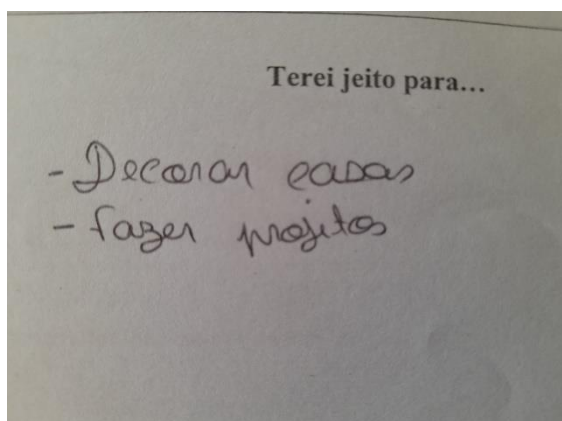 Terei jeito para...
- Decorar casas
- fazer projetos